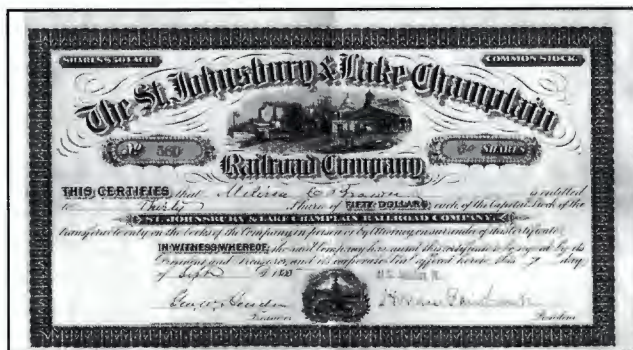 SHARES $50 EACH
COMMON STOCK.
The St. Johnsbury & Lake Champlain
No 560
SHARES
Railroad Company
THIS CERTIFIES that is entitled
to Shares of FIFTY DOLLARS, each, of the Capital Stock of the
ST. JOHNSBURY & LAKE CHAMPLAIN RAILROAD COMPANY,
transferable only on the books of the Company in person or by Attorney on surrender of this certificate
IN WITNESS WHEREOF, the said Company has caused this certificate to be signed by its
President and Treasurer and its corporate seal affixed hereto this 7 day
of Sept
Treasurer
President